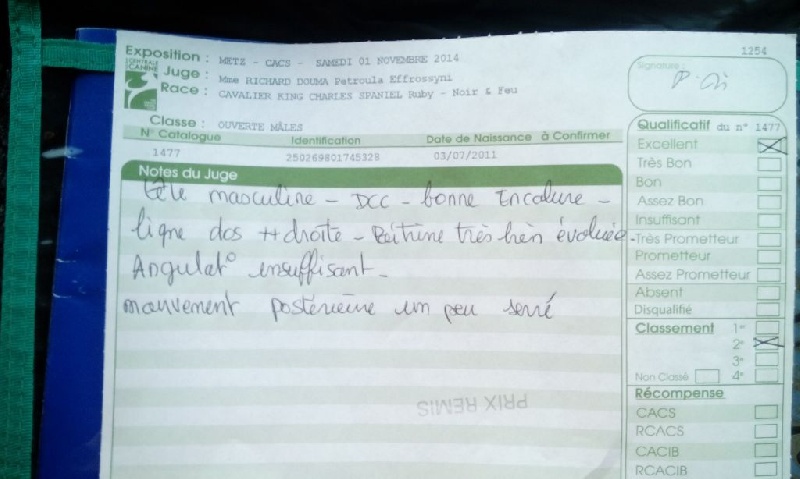 1254
Exposition : METZ - CACS - SAMEDI 01 NOVEMBRE 2014
CENTRALE CANINE
Juge : Mme RICHARD DOUMA Petroula Effrossyni
Race : CAVALIER KING CHARLES SPANIEL Ruby - Noir & Feu
Signature :
Classe : OUVERTE MÂLES
N° Catalogue Identification Date de Naissance à Confirmer
1477 250269801745328 03/07/2011
Notes du Juge
tête masculine - DCC - bonne Encolure -
ligne dos ++ droite - Poitrine très bien évoluée -
Angulat° insuffisant -
mouvement postérieure un peu serré
PRIX REMIS
Qualificatif du n° 1477
Excellent
Très Bon
Bon
Assez Bon
Insuffisant
Très Prometteur
Prometteur
Assez Prometteur
Absent
Disqualifié
Classement 1er
2e
3e
Non Classé 4e
Récompense
CACS
RCACS
CACIB
RCACIB